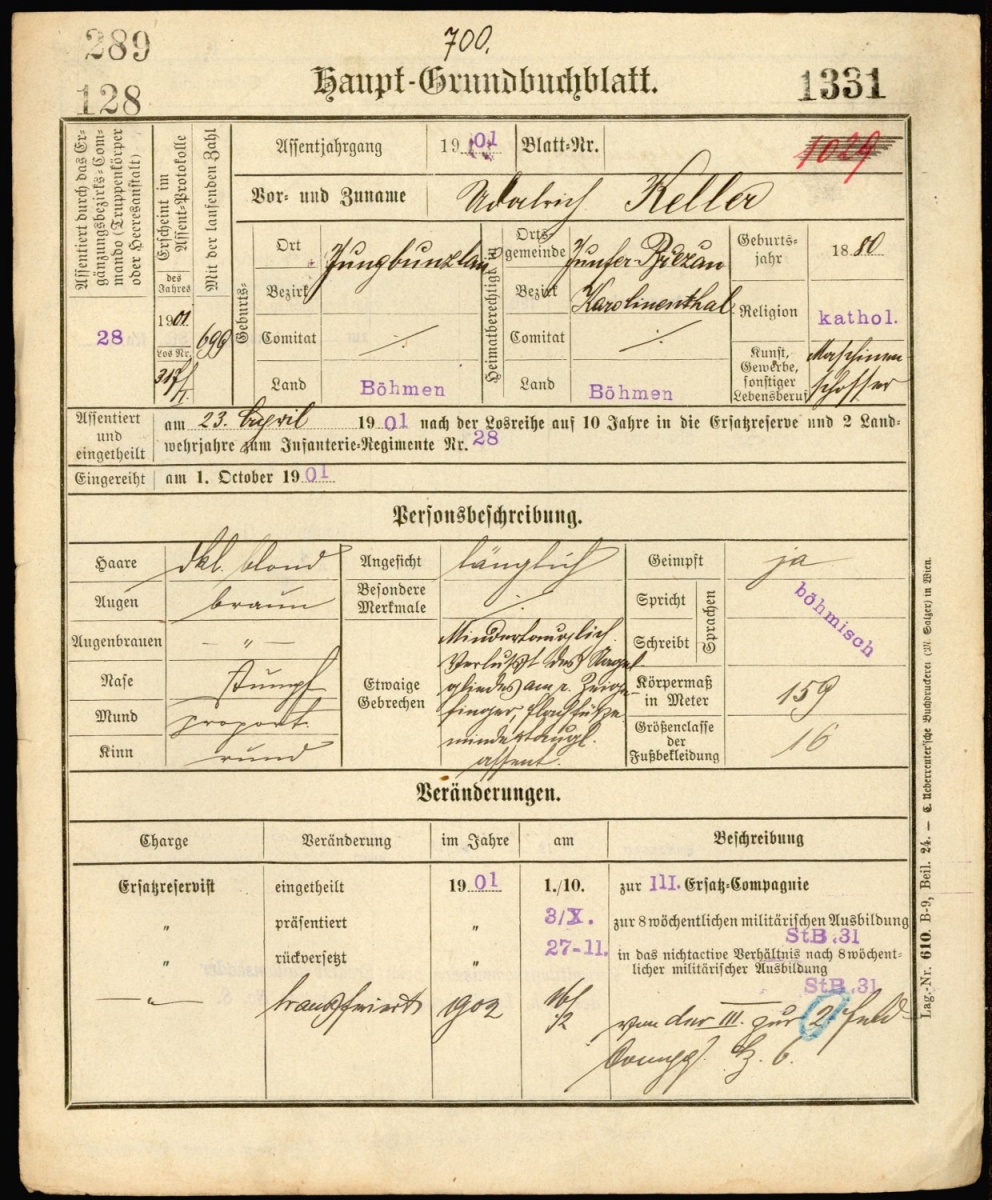 289
700.
128
Haupt-Grundbuchblatt.
1331
Assentiert durch das Ergänzungsbezirks-Commando (Truppenkörper oder Heeresanstalt)
28
Erscheint im Assent-Protokolle
des Jahres
1901
Los Nr.
317/I
Mit der laufenden Zahl
699
Assentjahrgang 1901 Blatt-Nr. 1029
Vor- und Zuname Udalrich Keller
Geburts-
Ort Jungbunzlau
Bezirk
Comitat ./.
Land Böhmen
Heimatberechtigt in
Ortsgemeinde Junfer-Březan
Bezirk Karolinenthal
Comitat ./.
Land Böhmen
Geburtsjahr 1880
Religion kathol.
Kunst, Gewerbe, sonstiger Lebensberuf Maschinen
schlosser
Assentiert und eingetheilt
am 23. April 1901 nach der Losreihe auf 10 Jahre in die Ersatzreserve und 2 Land-
wehrjahre zum Infanterie-Regimente Nr. 28
Eingereiht am 1. October 1901
Personsbeschreibung.
Haare dkl. blond
Augen braun
Augenbrauen — „ —
Nase stumpf
Mund proport.
Kinn rund
Angesicht länglich
Besondere Merkmale ./.
Etwaige Gebrechen
Mindertauglich.
Verlust des Nagel
gliedes am r. Zeige
finger,
mindertaugl.
assent.
Geimpft ja
Spricht
Schreibt
Sprachen
böhmisch
Körpermaß in Meter 159
Größenclasse der Fußbekleidung 16
Veränderungen.
Charge Veränderung im Jahre am Beschreibung
Ersatzreservist eingetheilt 1901 1./10. zur III. Ersatz-Compagnie
„ präsentiert „ 3/X. zur 8 wöchentlichen militärischen Ausbildung
StB.31
„ rückversetzt „ 27-11. in das nichtactive Verhältnis nach 8 wöchent-
licher militärischer Ausbildung
StB.31
— „ — transferiert 1902 von der III. zur 2 Feld
Lag.-Nr. 610. B-9, Beil. 24. — C. Ueberreuter'sche Buchdruckerei (M. Salzer) in Wien.